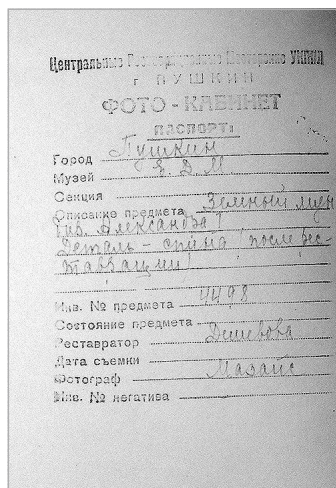 Центральные Государственные
г ПУШКИН
ФОТО-КАБИНЕТ
ПАСПОРТ:
Город Пушкин
Музей Е. Д. М
Секция
Описание предмета Земный
Александра I
Деталь - спина после рес-
таврации
Инв. № предмета 4498
Состояние предмета
Реставратор Дешевова
Дата съемки
Фотограф Мазайс
Инв. № негатива